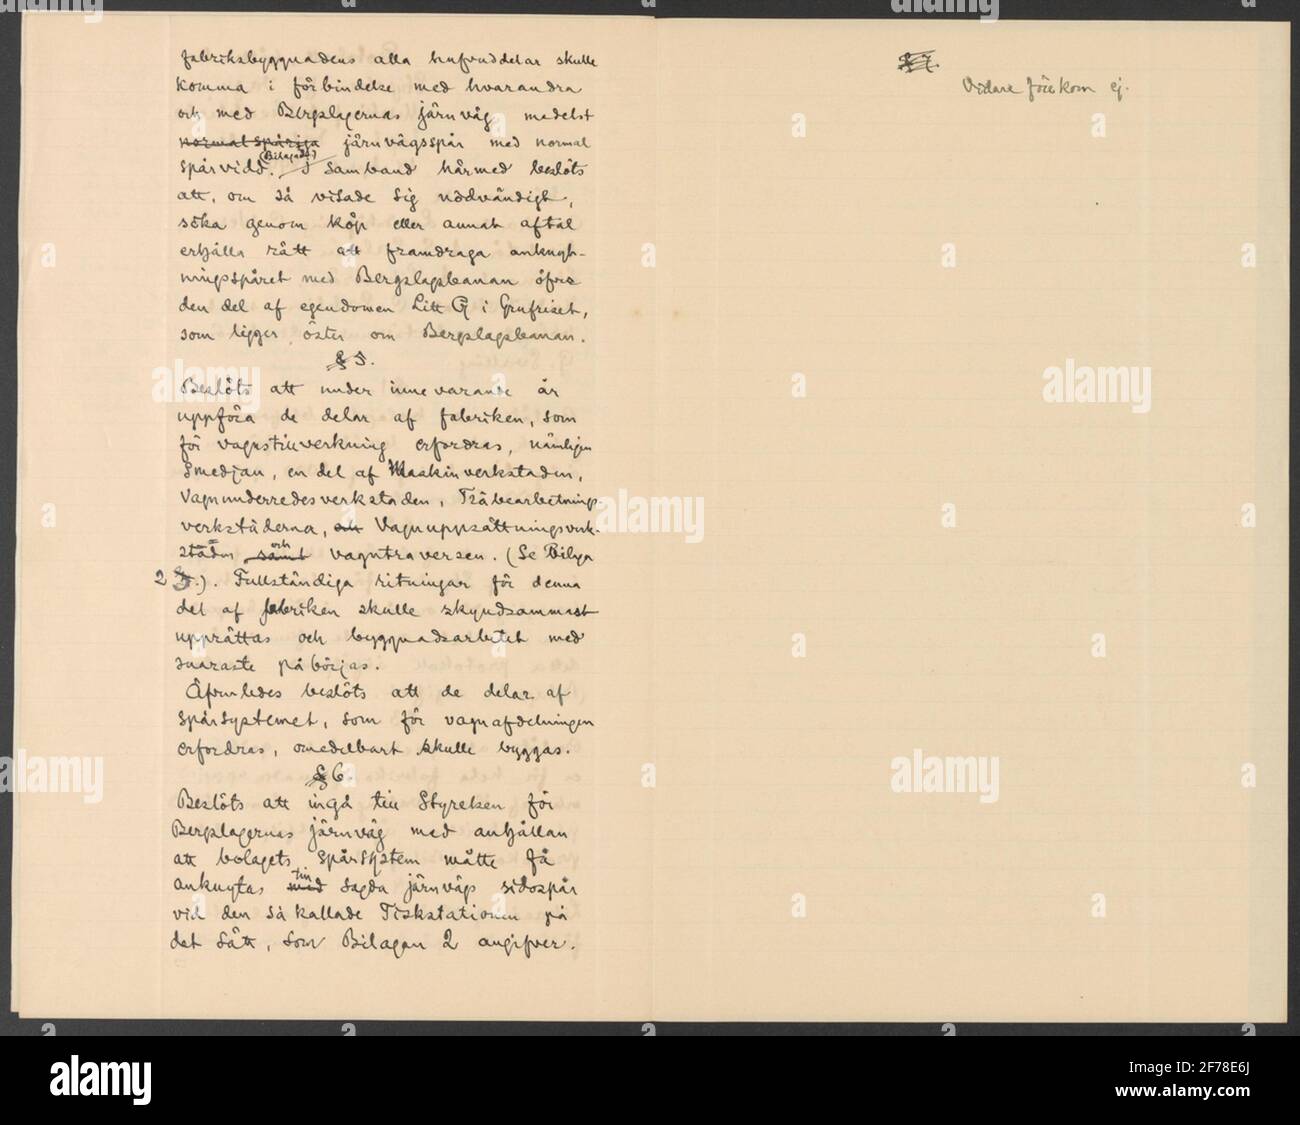 fabriksbyggnadens alla hufvuddelar skulle
komma i förbindelse med hvarandra
och med Bergslagernas järnväg medelst
normalspåriga järnvägsspår med normal
(Bilaga 2)
spårvidd. I samband härmed beslöts
att, om så visade sig nödvändigt,
söka genom köp eller annat aftal
erhålla rätt att framdraga anknyt-
ningsspåret med Bergslagsbanan öfver
den del af egendomen Litt G i Grufriset,
som ligger öster om Bergslagsbanan.
§ 5.
Beslöts att under innevarande år
uppföra de delar af fabriken, som
för vagnstillverkning erfordras, nämligen
Smedjan, en del af Maskinverkstaden,
Vagnunderredesverkstaden, Träbearbetnings
verkstäderna, Vagnuppsättningsverk-
och
staden samt vagntraversen. (Se Bilaga
2.). Fullständiga ritningar för denna
del af fabriken skulle skyndsammast
upprättas och byggnadsarbetet med
snaraste påbörjas.
Äfvenledes beslöts att de delar af
spårsystemet, som för vagnafdelningen
erfordras, omedelbart skulle byggas.
§ 6.
Beslöts att ingå till Styrelsen för
Bergslagernas järnväg med anhållan
att bolagets spårsystem måtte få
till
anknytas med sagda järnvägs sidospår
vid den så kallade Fiskstationen på
det sätt, som Bilagan 2 angifver.
§ 7.
Vidare förekom ej.
alamy
alamy
alamy
alamy
alamy
alamy
alamy
Image ID: 2F78E6J
www.alamy.com